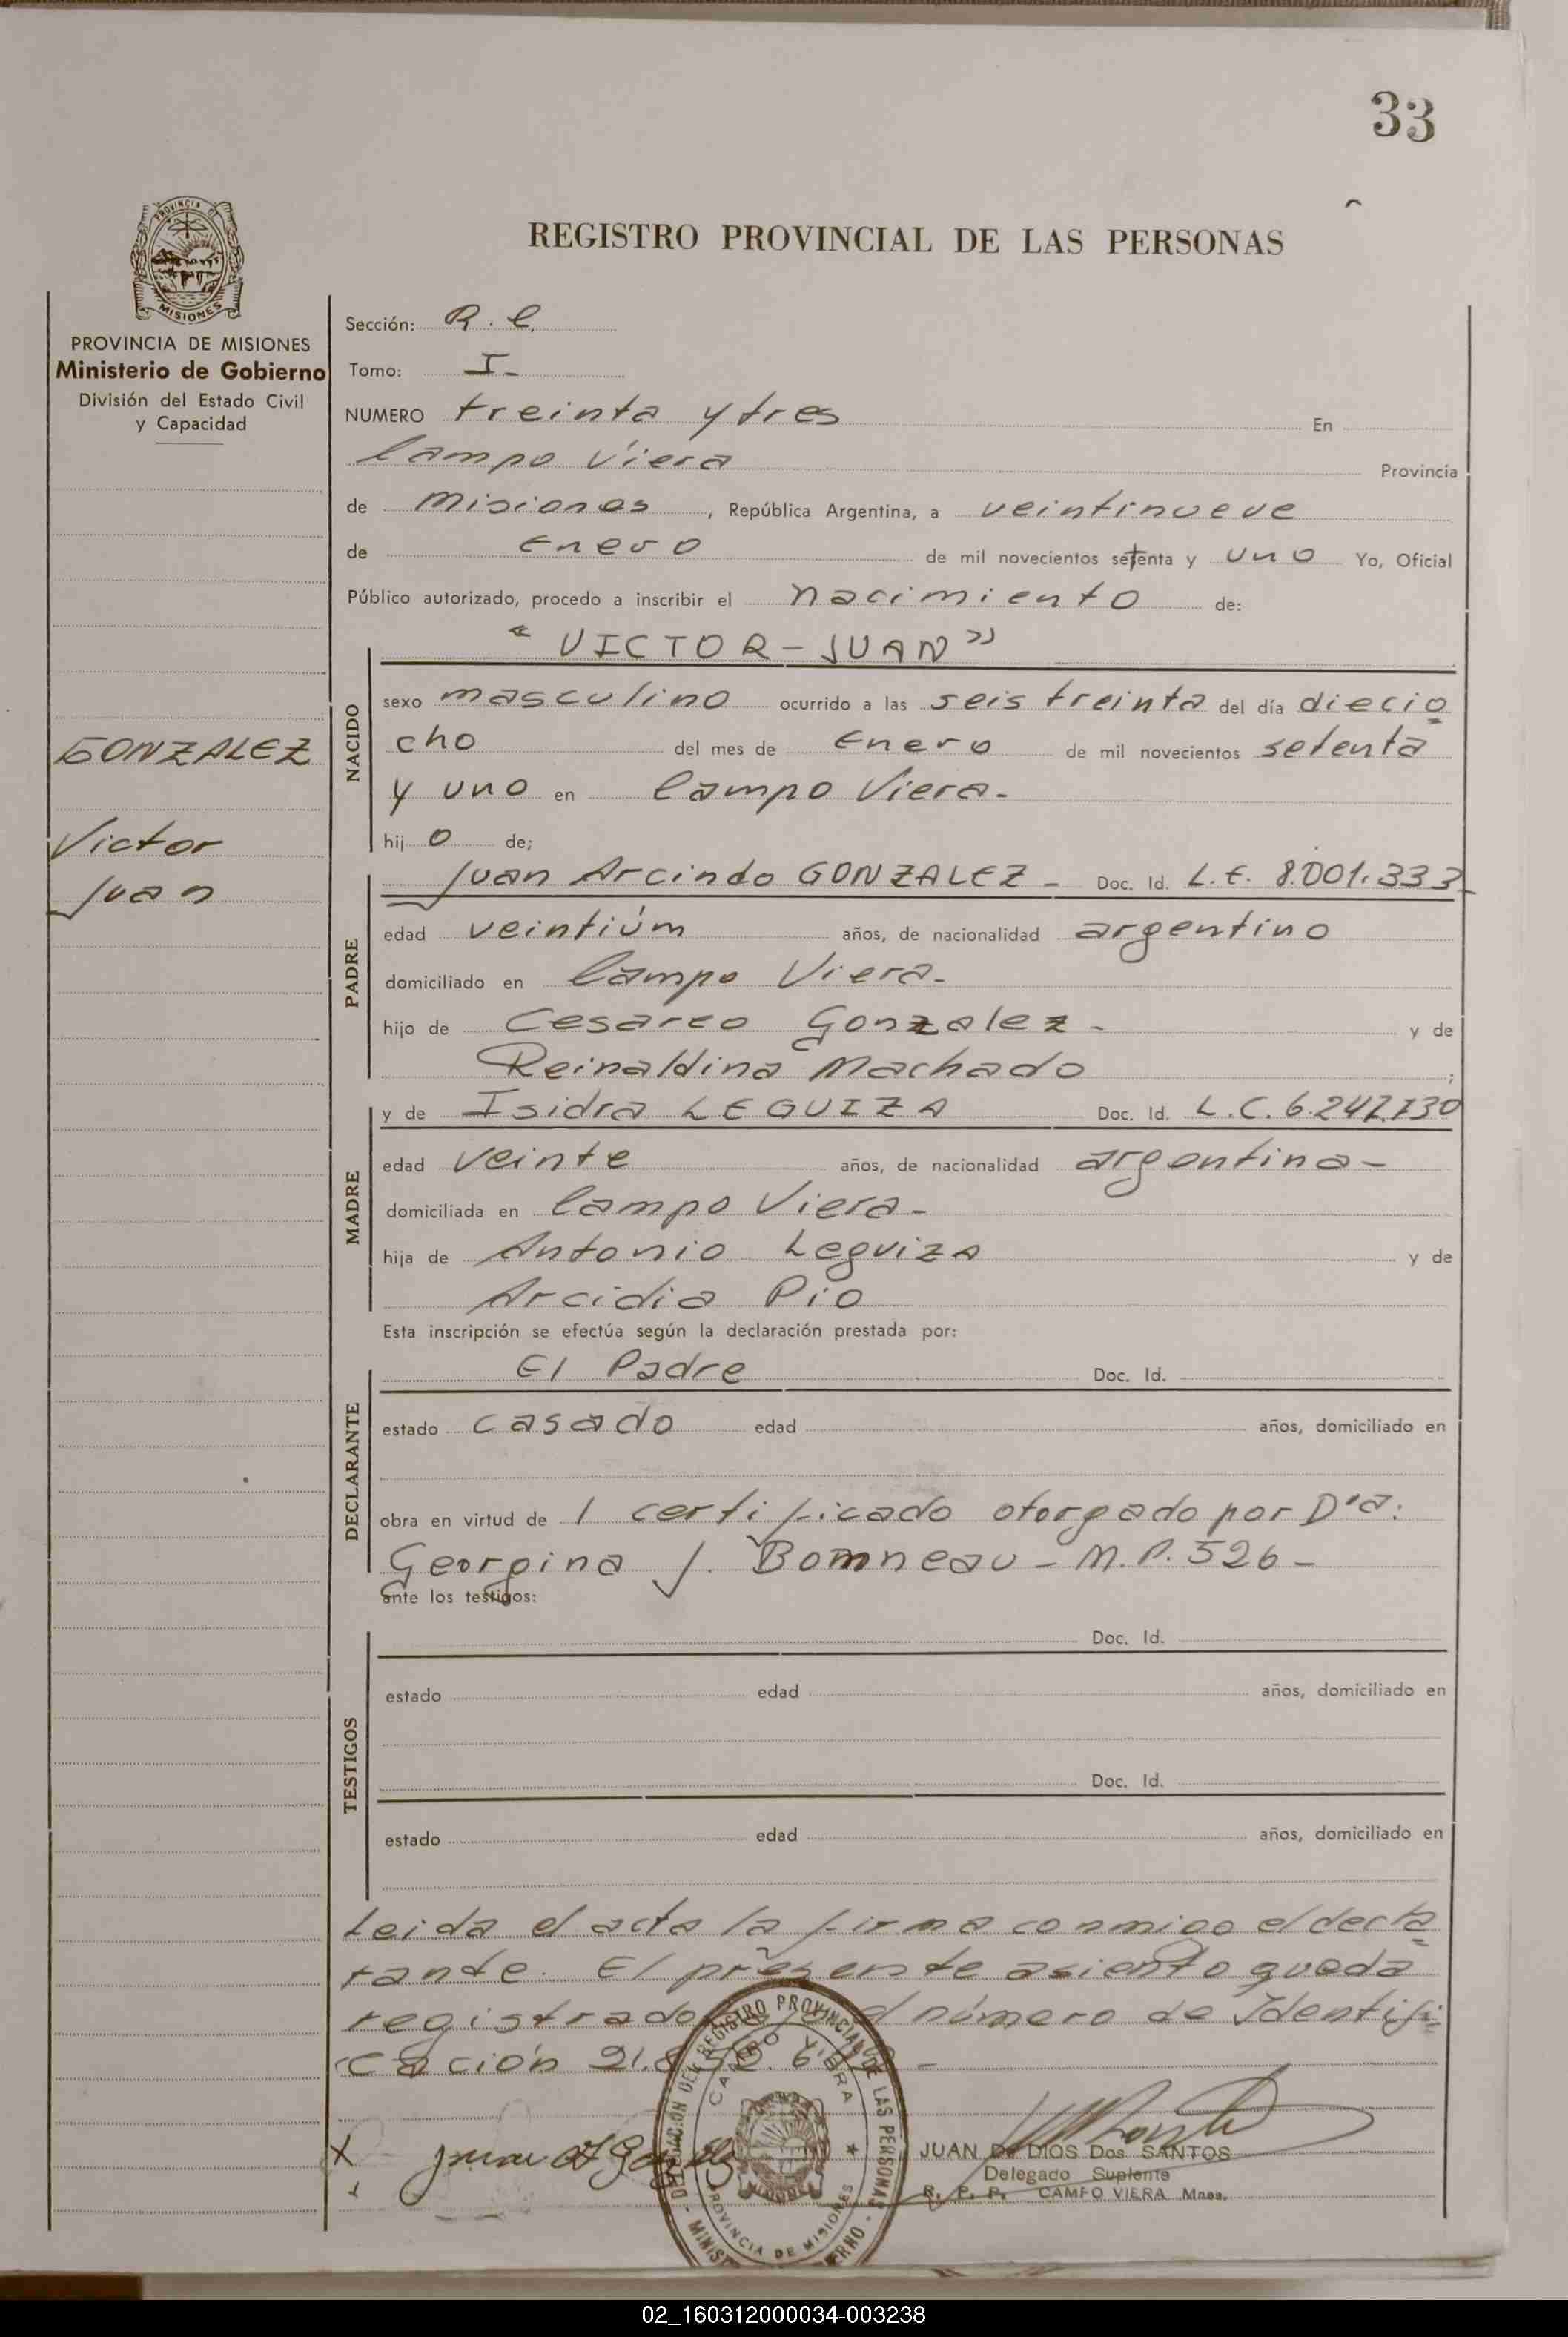 33
PROVINCIA DE
MISIONES
PROVINCIA DE MISIONES
Ministerio de Gobierno
División del Estado Civil
y Capacidad
GONZALEZ
Victor
Juan
REGISTRO PROVINCIAL DE LAS PERSONAS
Sección: R. C.
Tomo: I-
NUMERO treinta y tres En
Campo Viera Provincia
de Misiones, República Argentina, a veintinueve
de Enero de mil novecientos setenta y uno Yo, Oficial
Público autorizado, procedo a inscribir el nacimiento de:
"VICTOR-JUAN"
NACIDO
sexo masculino ocurrido a las seis treinta del día diecio
cho del mes de Enero de mil novecientos setenta
y uno en Campo Viera-
hijo de;
PADRE
Juan Arcindo GONZALEZ - Doc. Id. L.E. 8.001.333-
edad veintiúm años, de nacionalidad argentino
domiciliado en Campo Viera-
hijo de Cesareo Gonzalez - y de
Reinaldina Machado ;
MADRE
y de Isidra LEGUIZA Doc. Id. L.C. 6.247.730
edad veinte años, de nacionalidad argentina-
domiciliada en Campo Viera-
hija de Antonio Leguiza y de
Arcidia Pio
Esta inscripción se efectúa según la declaración prestada por:
DECLARANTE
El Padre Doc. Id.
estado casado edad años, domiciliado en
obra en virtud de 1 certificado otorgado por D'a:
Georgina J. Bomneau - M.P. 526-
ante los testigos:
TESTIGOS
Doc. Id.
estado edad años, domiciliado en
Doc. Id.
estado edad años, domiciliado en
Leida el acta la firma conmigo el decla
rante. El presente asiento queda
registrado número de Identifi
cación 21.
DEL REGISTRO PROVINCIAL DE LAS PERSONAS
CAMPO VIERA
PROVINCIA DE MISIONES
JUAN De DIOS Dos SANTOS
Delegado Suplente
R. P. P. CAMPO VIERA Mnes.
02_160312000034-003238